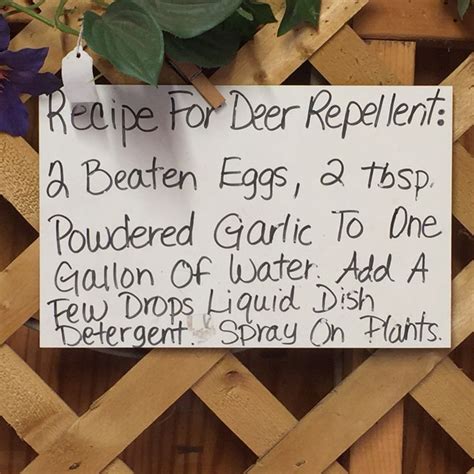 Recipe For Deer Repellent:
2 Beaten Eggs, 2 tbsp.
Powdered Garlic To One
Gallon Of Water. Add A
Few Drops Liquid Dish
Detergent. Spray On Plants.